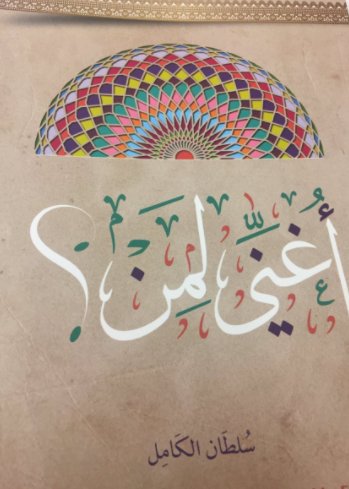 أُغنِّي لِمَن؟
سُلطَان الكَامِل